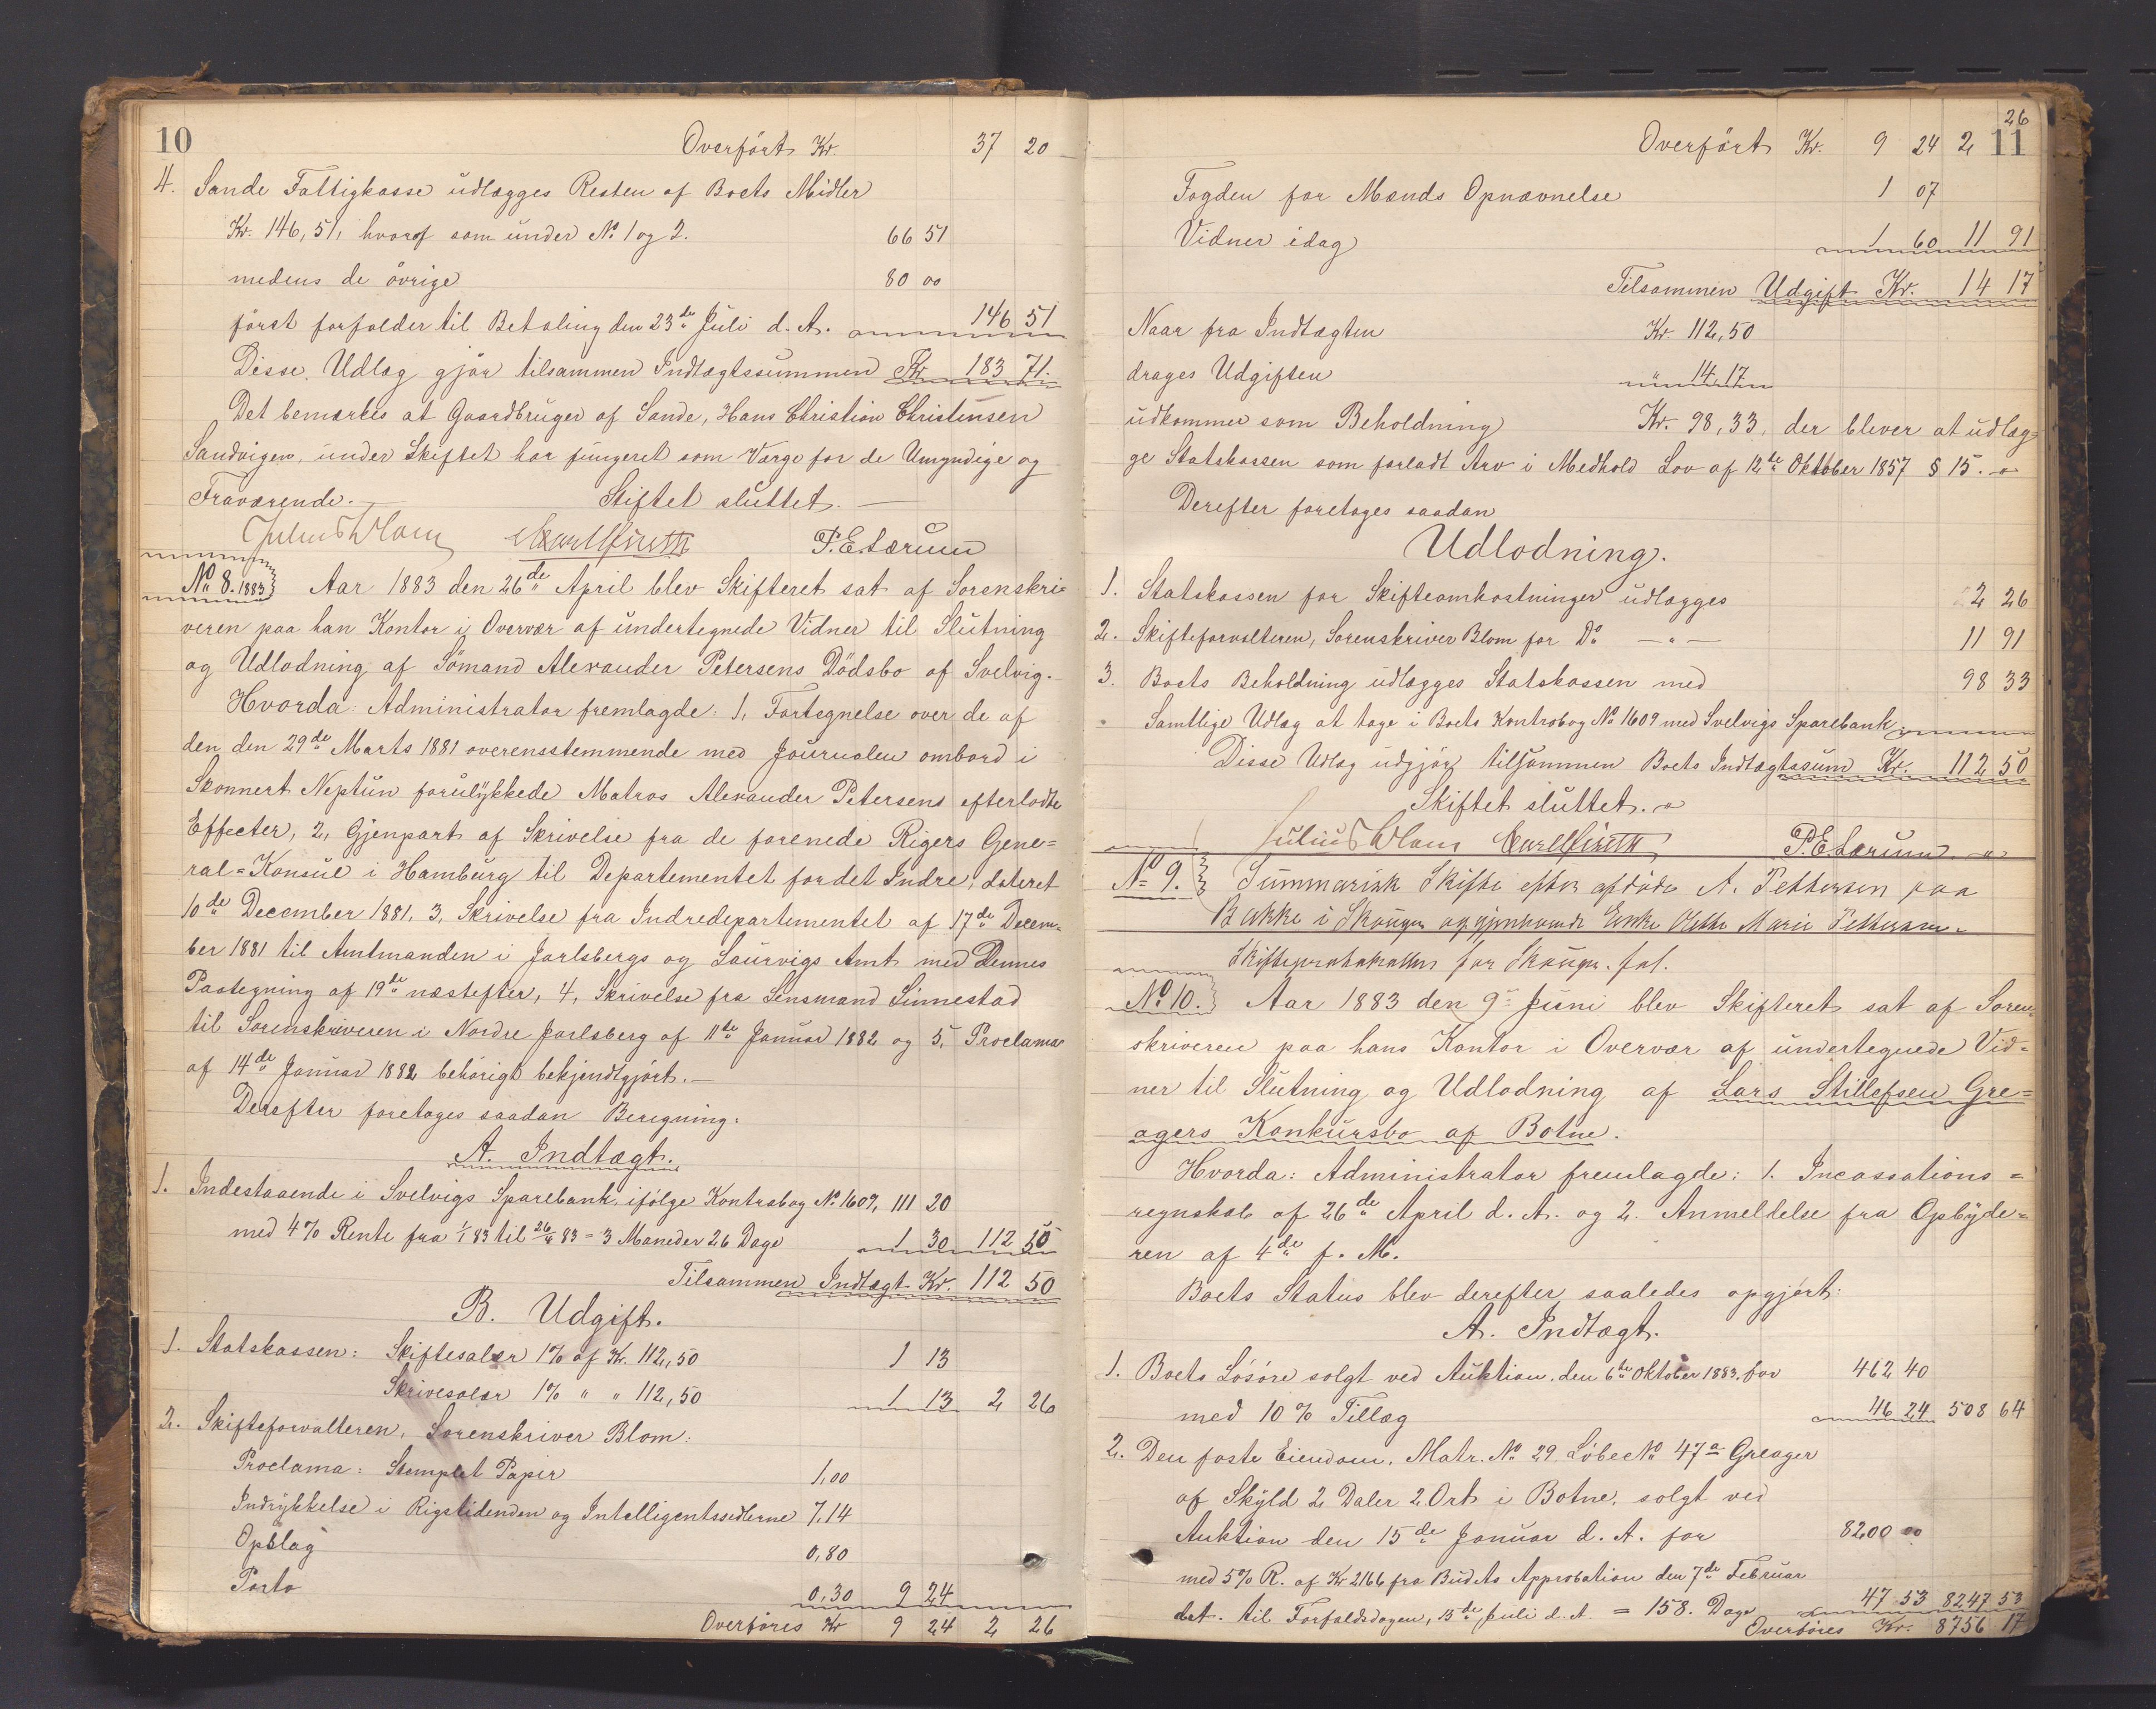 10
Overført Kr. 37 20
4. Sande Fattigkasse udlægges Resten af Boets Midler
Kr. 146,51, hvoraf som under No. 1 og 2. 66 51
medens de øvrige 80 00
først forfalder til Betaling den 23de Juli d. A. 146 51
Disse Udlæg gjør tilsammen Indtægtssummen Kr. 183 71.
Det bemærkes at Gaardbruger af Sande, Hans Christian Christensen
Sandvigen, under Skiftet har fungeret som Værge for de Umyndige og
Fraværende. — Skiftet sluttet. —
Julius Blom P. E. Lærum
No. 8. 1883 Aar 1883 den 26de April blev Skifteret sat af Sorenskri=
veren paa han Kontor i Overvær af undertegnede Vidner til Slutning
og Udlodning af Sømand Alexander Petersens Dødsbo af Svelvig.
Hvorda: Administrator fremlagde: 1, Fortegnelse over de af
den den 29de Marts 1881 overensstemmende med Journalen ombord i
Skonnert Neptun forulykkede Matros Alexander Petersens efterladte
Effecter, 2, Gjenpart af Skrivelse fra de forenede Rigers Gene=
ral=Konsul i Hamburg til Departementet for det Indre, dateret
10de December 1881. 3, Skrivelse fra Indredepartementet af 17de Decem=
ber 1881 til Amtmanden i Jarlsbergs og Laurvigs Amt med Dennes
Paategning af 19de næstefter, 4, Skrivelse fra Lensmand Linnestad
til Sorenskriveren i Nordre Jarlsberg af 11de Januar 1882 og 5, Proclama
af 14de Januar 1882 behørigt bekjendtgjørt. —
Derefter foretoges saadan Beregning:
A. Indtægt.
1. Indestaaende i Svelvigs Sparebank, ifølge Kontrabog No. 1609, 111 20
med 4% Rente fra 1/1 83 til 26/4 83 = 3 Maneder 26 Dage 1 30 112 50
Tilsammen Indtægt Kr. 112 50
B. Udgift.
1. Statskassen: Skiftesalær 1% af Kr. 112,50 1 13
Skrivesalær 1% " " 112,50 1 13 2 26
2. Skifteforvalteren, Sorenskriver Blom:
Proclama: Stemplet Papir 1,00
Indrykkelse i Rigstidenden og Intelligentssedlerne 7,14
Opslag 0,80
Porto 0,30 9 24
Overføres Kr 9 24 2 26
11
26
Overført Kr. 9 24 2
Fogden for Mænds Opnævnelse 1 07
Vidner idag 1 60 11 91
Tilsammen Udgift Kr. 14 17
Naar fra Indtægten Kr. 112,50
drages Udgiften " 14,17
udkommer som Beholdning Kr. 98,33, der bliver at udlæg=
ge Statskassen som forladt Arv i Medhold Lov af 12te Oktober 1857 § 15.
Derefter foretoges saadan
Udlodning.
1. Statskassen for Skifteomkostninger udlægges 2 26
2. Skifteforvalteren, Sorenskriver Blom for Do — " — 11 91
3. Boets Beholdning udlægges Statskassen med 98 33
Samtlige Udlæg at tage i Boets Kontrabog No 1609 med Svelvigs Sparebank
Disse Udlæg udgjør tilsammen Boets Indtægtssum Kr. 112 50
Skiftet sluttet.
Julius Blom P. E. Lærum
No. 9. Summarisk Skifte efter afdøde A. Pettersen paa
Bakke i Skouger og gjenlevende Enke Marie Pettersen.
Skifteprotokollen for Skouger. fol.
No. 10. Aar 1883 den 9de Juni blev Skifteret sat af Soren=
skriveren paa hans Kontor i Overvær af undertegnede Vid=
ner til Slutning og Udlodning af Lars Stillefsen Gre=
agers Konkursbo af Botne.
Hvorda: Administrator fremlagde: 1. Incassations=
regnskab af 26de April d. A. og 2. Anmeldelse fra Opbyde=
ren af 4de f. M.
Boets Status blev derefter saaledes opgjørt:
A. Indtægt.
1. Boets Løsøre solgt ved Auktion den 6te Oktober 1883 for 462 40
med 10% Tillæg 46 24 508 64
2. Den faste Eiendom, Matr. No 29, Løbe No 47a Greager
af Skyld 2 Daler 2 Ort i Botne, solgt ved
Auktion den 15de Januar d. A. for 8200 00
med 5% R. af Kr 2166 fra Budets Approbation den 7de Februar
dst. til Forfaldsdagen, 15de Juli d. A. = 158. Dage 47 53 8247 53
Overføres Kr. 8756 17